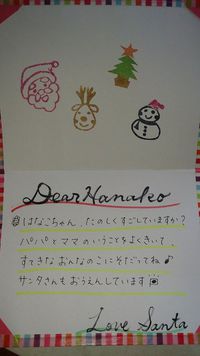 Dear Hanako
はなこちゃん、たのしくすごしていますか?
パパとママのいうことをよくきいて、
すてきなおんなのこにそだってね♪
サンタさんもおうえんしています
Love Santa